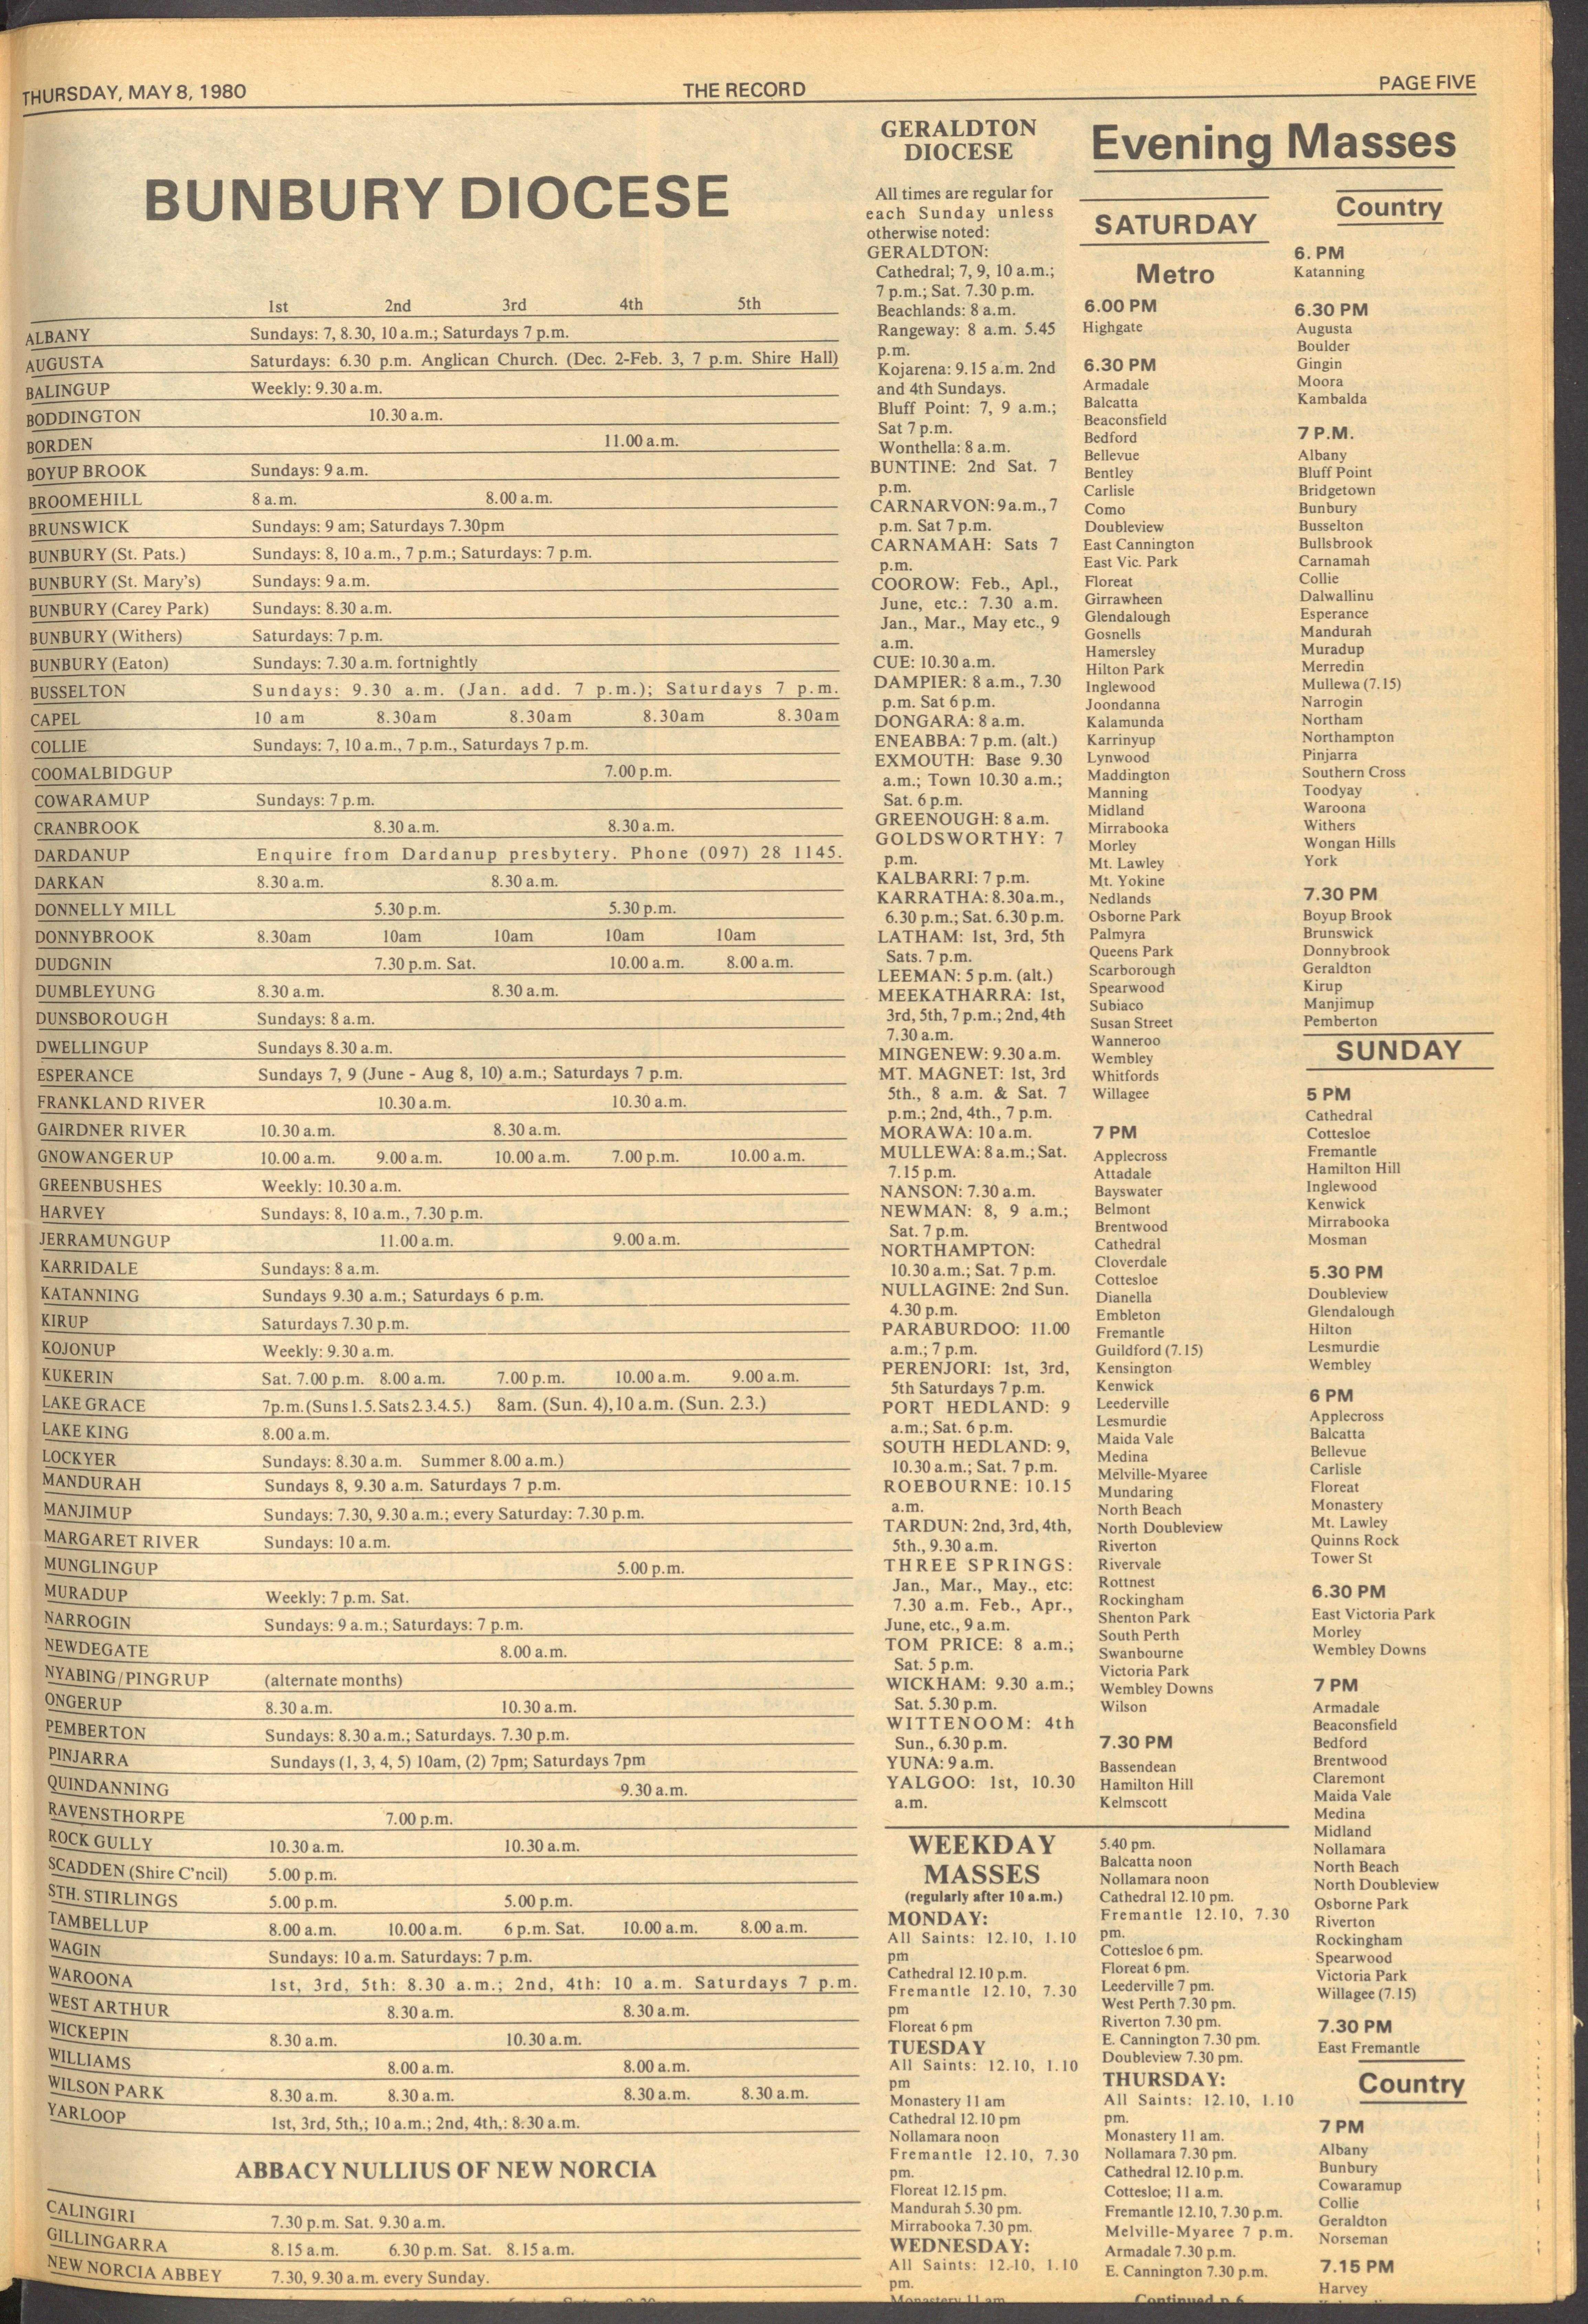 THURSDAY, MAY 8, 1980 THE RECORD PAGE FIVE
BUNBURY DIOCESE
1st 2nd 3rd 4th 5th
ALBANY Sundays: 7, 8.30, 10 a.m.; Saturdays 7 p.m.
AUGUSTA Saturdays: 6.30 p.m. Anglican Church. (Dec. 2-Feb. 3, 7 p.m. Shire Hall)
BALINGUP Weekly: 9.30 a.m.
BODDINGTON 10.30 a.m.
BORDEN 11.00 a.m.
BOYUP BROOK Sundays: 9 a.m.
BROOMEHILL 8 a.m. 8.00 a.m.
BRUNSWICK Sundays: 9 am; Saturdays 7.30pm
BUNBURY (St. Pats.) Sundays: 8, 10 a.m., 7 p.m.; Saturdays: 7 p.m.
BUNBURY (St. Mary's) Sundays: 9 a.m.
BUNBURY (Carey Park) Sundays: 8.30 a.m.
BUNBURY (Withers) Saturdays: 7 p.m.
BUNBURY (Eaton) Sundays: 7.30 a.m. fortnightly
BUSSELTON Sundays: 9.30 a.m. (Jan. add. 7 p.m.); Saturdays 7 p.m.
CAPEL 10 am 8.30am 8.30am 8.30am 8.30am
COLLIE Sundays: 7, 10 a.m., 7 p.m., Saturdays 7 p.m.
COOMALBIDGUP 7.00 p.m.
COWARAMUP Sundays: 7 p.m.
CRANBROOK 8.30 a.m. 8.30 a.m.
DARDANUP Enquire from Dardanup presbytery. Phone (097) 28 1145.
DARKAN 8.30 a.m. 8.30 a.m.
DONNELLY MILL 5.30 p.m. 5.30 p.m.
DONNYBROOK 8.30am 10am 10am 10am 10am
DUDGNIN 7.30 p.m. Sat. 10.00 a.m. 8.00 a.m.
DUMBLEYUNG 8.30 a.m. 8.30 a.m.
DUNSBOROUGH Sundays: 8 a.m.
DWELLINGUP Sundays 8.30 a.m.
ESPERANCE Sundays 7, 9 (June - Aug 8, 10) a.m.; Saturdays 7 p.m.
FRANKLAND RIVER 10.30 a.m. 10.30 a.m.
GAIRDNER RIVER 10.30 a.m. 8.30 a.m.
GNOWANGERUP 10.00 a.m. 9.00 a.m. 10.00 a.m. 7.00 p.m. 10.00 a.m.
GREENBUSHES Weekly: 10.30 a.m.
HARVEY Sundays: 8, 10 a.m., 7.30 p.m.
JERRAMUNGUP 11.00 a.m. 9.00 a.m.
KARRIDALE Sundays: 8 a.m.
KATANNING Sundays 9.30 a.m.; Saturdays 6 p.m.
KIRUP Saturdays 7.30 p.m.
KOJONUP Weekly: 9.30 a.m.
KUKERIN Sat. 7.00 p.m. 8.00 a.m. 7.00 p.m. 10.00 a.m. 9.00 a.m.
LAKE GRACE 7p.m.(Suns 1.5. Sats 2.3.4.5.) 8am. (Sun. 4), 10 a.m. (Sun. 2.3.)
LAKE KING 8.00 a.m.
LOCKYER Sundays: 8.30 a.m. Summer 8.00 a.m.)
MANDURAH Sundays 8, 9.30 a.m. Saturdays 7 p.m.
MANJIMUP Sundays: 7.30, 9.30 a.m.; every Saturday: 7.30 p.m.
MARGARET RIVER Sundays: 10 a.m.
MUNGLINGUP 5.00 p.m.
MURADUP Weekly: 7 p.m. Sat.
NARROGIN Sundays: 9 a.m.; Saturdays: 7 p.m.
NEWDEGATE 8.00 a.m.
NYABING/PINGRUP (alternate months)
ONGERUP 8.30 a.m. 10.30 a.m.
PEMBERTON Sundays: 8.30 a.m.; Saturdays. 7.30 p.m.
PINJARRA Sundays (1, 3, 4, 5) 10am, (2) 7pm; Saturdays 7pm
QUINDANNING 9.30 a.m.
RAVENSTHORPE 7.00 p.m.
ROCK GULLY 10.30 a.m. 10.30 a.m.
SCADDEN (Shire C'ncil) 5.00 p.m.
STH. STIRLINGS 5.00 p.m. 5.00 p.m.
TAMBELLUP 8.00 a.m. 10.00 a.m. 6 p.m. Sat. 10.00 a.m. 8.00 a.m.
WAGIN Sundays: 10 a.m. Saturdays: 7 p.m.
WAROONA 1st, 3rd, 5th: 8.30 a.m.; 2nd, 4th: 10 a.m. Saturdays 7 p.m.
WEST ARTHUR 8.30 a.m. 8.30 a.m.
WICKEPIN 8.30 a.m. 10.30 a.m.
WILLIAMS 8.00 a.m. 8.00 a.m.
WILSON PARK 8.30 a.m. 8.30 a.m. 8.30 a.m. 8.30 a.m.
YARLOOP 1st, 3rd, 5th,; 10 a.m.; 2nd, 4th,: 8.30 a.m.
ABBACY NULLIUS OF NEW NORCIA
CALINGIRI 7.30 p.m. Sat. 9.30 a.m.
GILLINGARRA 8.15 a.m. 6.30 p.m. Sat. 8.15 a.m.
NEW NORCIA ABBEY 7.30, 9.30 a.m. every Sunday.
GERALDTON
DIOCESE
All times are regular for
each Sunday unless
otherwise noted:
GERALDTON:
Cathedral; 7, 9, 10 a.m.;
7 p.m.; Sat. 7.30 p.m.
Beachlands: 8 a.m.
Rangeway: 8 a.m. 5.45
p.m.
Kojarena: 9.15 a.m. 2nd
and 4th Sundays.
Bluff Point: 7, 9 a.m.;
Sat 7 p.m.
Wonthella: 8 a.m.
BUNTINE: 2nd Sat. 7
p.m.
CARNARVON: 9 a.m., 7
p.m. Sat 7 p.m.
CARNAMAH: Sats 7
p.m.
COOROW: Feb., Apl.,
June, etc.: 7.30 a.m.
Jan., Mar., May etc., 9
a.m.
CUE: 10.30 a.m.
DAMPIER: 8 a.m., 7.30
p.m. Sat 6 p.m.
DONGARA: 8 a.m.
ENEABBA: 7 p.m. (alt.)
EXMOUTH: Base 9.30
a.m.; Town 10.30 a.m.;
Sat. 6 p.m.
GREENOUGH: 8 a.m.
GOLDSWORTHY: 7
p.m.
KALBARRI: 7 p.m.
KARRATHA: 8.30 a.m.,
6.30 p.m.; Sat. 6.30 p.m.
LATHAM: 1st, 3rd, 5th
Sats. 7 p.m.
LEEMAN: 5 p.m. (alt.)
MEEKATHARRA: 1st,
3rd, 5th, 7 p.m.; 2nd, 4th
7.30 a.m.
MINGENEW: 9.30 a.m.
MT. MAGNET: 1st, 3rd
5th., 8 a.m. & Sat. 7
p.m.; 2nd, 4th., 7 p.m.
MORAWA: 10 a.m.
MULLEWA: 8 a.m.; Sat.
7.15 p.m.
NANSON: 7.30 a.m.
NEWMAN: 8, 9 a.m.;
Sat. 7 p.m.
NORTHAMPTON:
10.30 a.m.; Sat. 7 p.m.
NULLAGINE: 2nd Sun.
4.30 p.m.
PARABURDOO: 11.00
a.m.; 7 p.m.
PERENJORI: 1st, 3rd,
5th Saturdays 7 p.m.
PORT HEDLAND: 9
a.m.; Sat. 6 p.m.
SOUTH HEDLAND: 9,
10.30 a.m.; Sat. 7 p.m.
ROEBOURNE: 10.15
a.m.
TARDUN: 2nd, 3rd, 4th,
5th., 9.30 a.m.
THREE SPRINGS:
Jan., Mar., May., etc:
7.30 a.m. Feb., Apr.,
June, etc., 9 a.m.
TOM PRICE: 8 a.m.;
Sat. 5 p.m.
WICKHAM: 9.30 a.m.;
Sat. 5.30 p.m.
WITTENOOM: 4th
Sun., 6.30 p.m.
YUNA: 9 a.m.
YALGOO: 1st, 10.30
a.m.
Evening Masses
SATURDAY
Metro
6.00 PM
Highgate
6.30 PM
Armadale
Balcatta
Beaconsfield
Bedford
Bellevue
Bentley
Carlisle
Como
Doubleview
East Cannington
East Vic. Park
Floreat
Girrawheen
Glendalough
Gosnells
Hamersley
Hilton Park
Inglewood
Joondanna
Kalamunda
Karrinyup
Lynwood
Maddington
Manning
Midland
Mirrabooka
Morley
Mt. Lawley
Mt. Yokine
Nedlands
Osborne Park
Palmyra
Queens Park
Scarborough
Spearwood
Subiaco
Susan Street
Wanneroo
Wembley
Whitfords
Willagee
7 PM
Applecross
Attadale
Bayswater
Belmont
Brentwood
Cathedral
Cloverdale
Cottesloe
Dianella
Embleton
Fremantle
Guildford (7.15)
Kensington
Kenwick
Leederville
Lesmurdie
Maida Vale
Medina
Melville-Myaree
Mundaring
North Beach
North Doubleview
Riverton
Rivervale
Rottnest
Rockingham
Shenton Park
South Perth
Swanbourne
Victoria Park
Wembley Downs
Wilson
7.30 PM
Bassendean
Hamilton Hill
Kelmscott
Country
6. PM
Katanning
6.30 PM
Augusta
Boulder
Gingin
Moora
Kambalda
7 P.M.
Albany
Bluff Point
Bridgetown
Bunbury
Busselton
Bullsbrook
Carnamah
Collie
Dalwallinu
Esperance
Mandurah
Muradup
Merredin
Mullewa (7.15)
Narrogin
Northam
Northampton
Pinjarra
Southern Cross
Toodyay
Waroona
Withers
Wongan Hills
York
7.30 PM
Boyup Brook
Brunswick
Donnybrook
Geraldton
Kirup
Manjimup
Pemberton
SUNDAY
5 PM
Cathedral
Cottesloe
Fremantle
Hamilton Hill
Inglewood
Kenwick
Mirrabooka
Mosman
5.30 PM
Doubleview
Glendalough
Hilton
Lesmurdie
Wembley
6 PM
Applecross
Balcatta
Bellevue
Carlisle
Floreat
Monastery
Mt. Lawley
Quinns Rock
Tower St
6.30 PM
East Victoria Park
Morley
Wembley Downs
7 PM
Armadale
Beaconsfield
Bedford
Brentwood
Claremont
Maida Vale
Medina
Midland
Nollamara
North Beach
North Doubleview
Osborne Park
Riverton
Rockingham
Spearwood
Victoria Park
Willagee (7.15)
7.30 PM
East Fremantle
Country
7 PM
Albany
Bunbury
Cowaramup
Collie
Geraldton
Norseman
7.15 PM
Harvey
WEEKDAY
MASSES
(regularly after 10 a.m.)
MONDAY:
All Saints: 12.10, 1.10
pm
Cathedral 12.10 p.m.
Fremantle 12.10, 7.30
pm
Floreat 6 pm
TUESDAY
All Saints: 12.10, 1.10
pm
Monastery 11 am
Cathedral 12.10 pm
Nollamara noon
Fremantle 12.10, 7.30
pm.
Floreat 12.15 pm.
Mandurah 5.30 pm.
Mirrabooka 7.30 pm.
WEDNESDAY:
All Saints: 12.10, 1.10
pm.
Monastery 11 am
5.40 pm.
Balcatta noon
Nollamara noon
Cathedral 12.10 pm.
Fremantle 12.10, 7.30
pm.
Cottesloe 6 pm.
Floreat 6 pm.
Leederville 7 pm.
West Perth 7.30 pm.
Riverton 7.30 pm.
E. Cannington 7.30 pm.
Doubleview 7.30 pm.
THURSDAY:
All Saints: 12.10, 1.10
pm.
Monastery 11 am.
Nollamara 7.30 pm.
Cathedral 12.10 p.m.
Cottesloe; 11 a.m.
Fremantle 12.10, 7.30 p.m.
Melville-Myaree 7 p.m.
Armadale 7.30 p.m.
E. Cannington 7.30 p.m.
Continued p 6